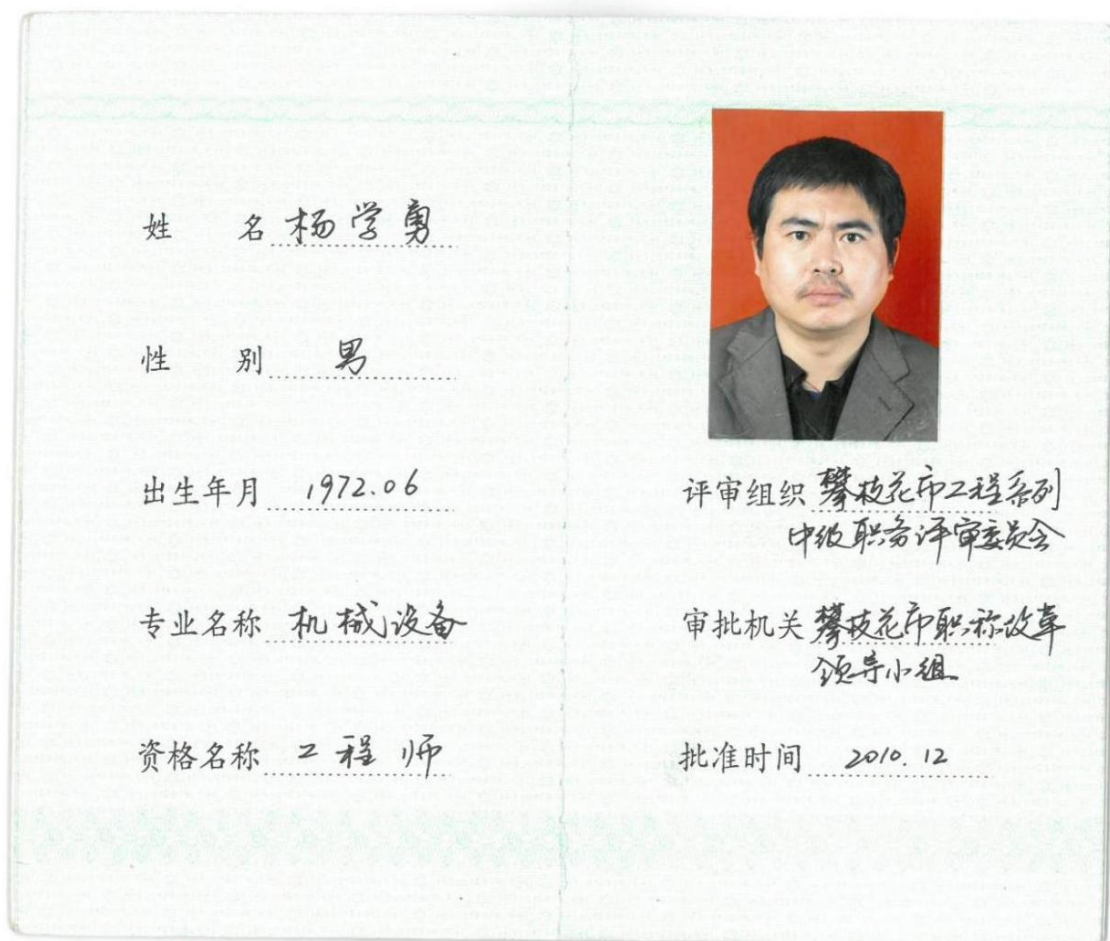 姓 名 杨学勇
性 别 男
出生年月 1972.06
专业名称 机械设备
资格名称 工程师
评审组织 攀枝花市工程系列
中级职务评审委员会
审批机关 攀枝花市职称改革
领导小组
批准时间 2010.12